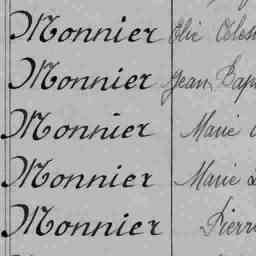 Monnier Elie
Monnier Jean
Monnier Marie
Monnier Marie
Monnier Pierre